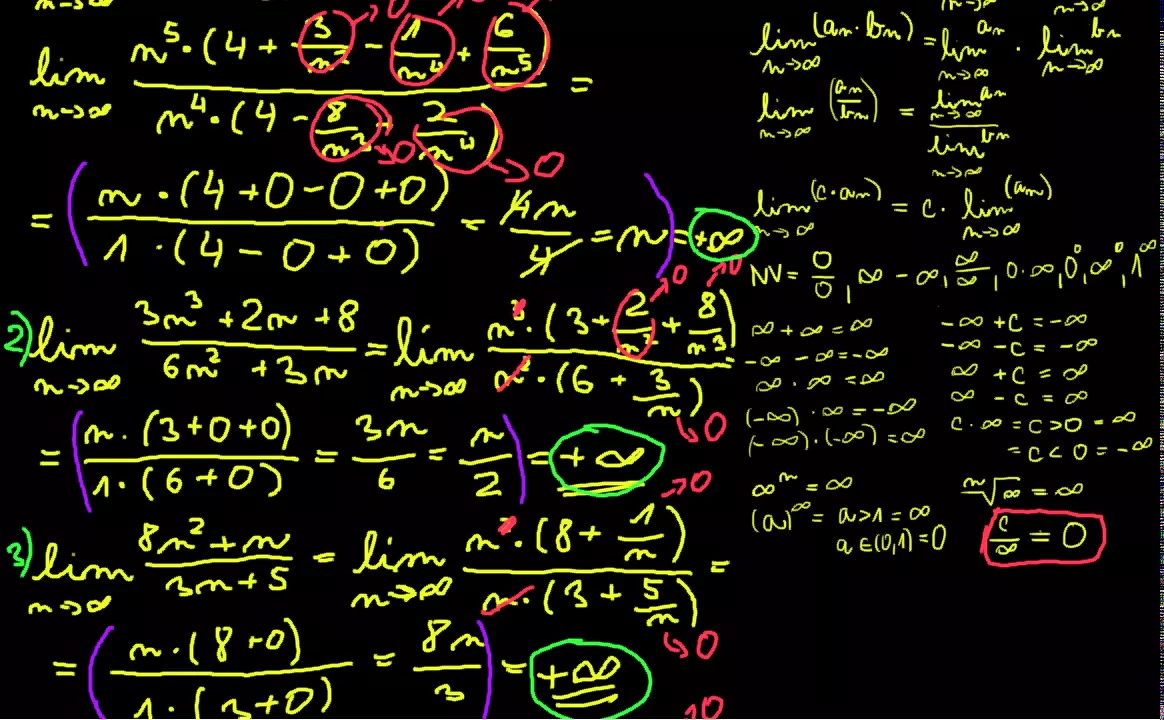 lim n→∞ n⁵·(4 + 3/n² − 1/n⁴ + 6/n⁵) / n⁴·(4 − 8/n³ + 2/n⁴) =
→0 →0 →0
= ( n·(4+0−0+0) / 1·(4−0+0) = 4n/4 = n ) = +∞
2) lim n→∞ 3n³+2n+8 / 6n²+3n = lim n→∞ n³·(3+2/n²+8/n³) / n²·(6+3/n)
→0 →0 →0
= ( n·(3+0+0) / 1·(6+0) = 3n/6 = n/2 ) = +∞
3) lim n→∞ 8n²+n / 3n+5 = lim n→∞ n²·(8+1/n) / n·(3+5/n) =
→0 →0
= ( n·(8+0) / 1·(3+0) = 8n/3 ) = +∞
lim n→∞ (an·bn) = lim n→∞ an · lim n→∞ bn
lim n→∞ (an/bn) = lim n→∞ an / lim n→∞ bn
lim n→∞ (c·an) = c·lim n→∞ (an)
NV = 0/0, ∞−∞, ∞/∞, 0·∞, 0⁰, ∞⁰, 1^∞
∞+∞=∞
-∞-∞=-∞
∞·∞=∞
(-∞)·∞=-∞
(-∞)·(-∞)=∞
-∞+c=-∞
-∞-c=-∞
∞+c=∞
∞-c=∞
c·∞=c>0=∞
=c<0=-∞
∞ⁿ=∞
(a)^∞= a>1=∞
a∈(0,1)=0
ⁿ√∞=∞
c/∞=0